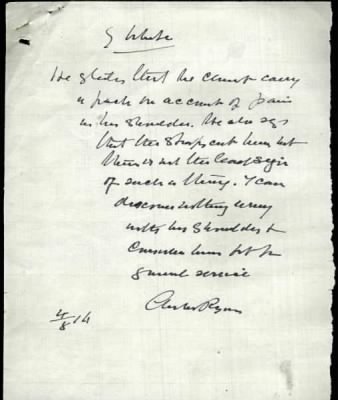 G White
He states that he cannot carry
a pack on account of pain
in his shoulder. He also says
that the straps cut him but
there is not the least sign
of such a thing. I can
discover nothing wrong
with his shoulder &
consider him fit for
general service
Ryan
4/8/14